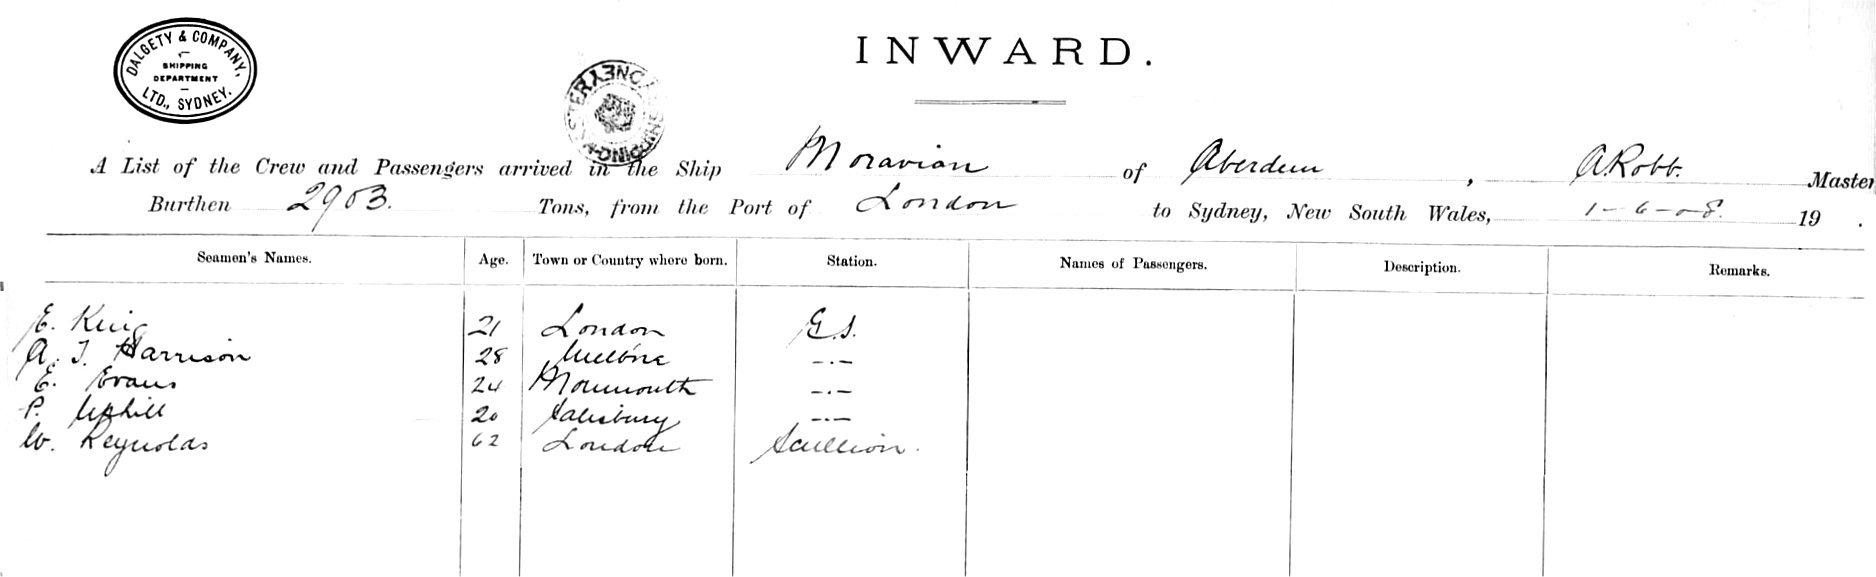 DALGETY & COMPANY,
SHIPPING
DEPARTMENT
LTD., SYDNEY.
INWARD.
A List of the Crew and Passengers arrived in the Ship Moravian of Aberdeen, A. Robb. Master
Burthen 2903. Tons, from the Port of London to Sydney, New South Wales, 1-6-08 19 .
Seamen's Names. Age. Town or Country where born. Station. Names of Passengers. Description. Remarks.
E. King 21 London G.S.
A. T. Harrison 28 Melb'ne -.-
E. Evans 24 Monmouth -.-
P. Uphill 20 Salisbury -.-
W. Reynolds 62 London Scullion.